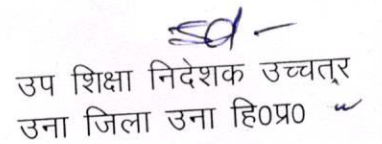 Sd -
उप शिक्षा निदेशक उच्चत्तर
उना जिला उना हि०प्र०